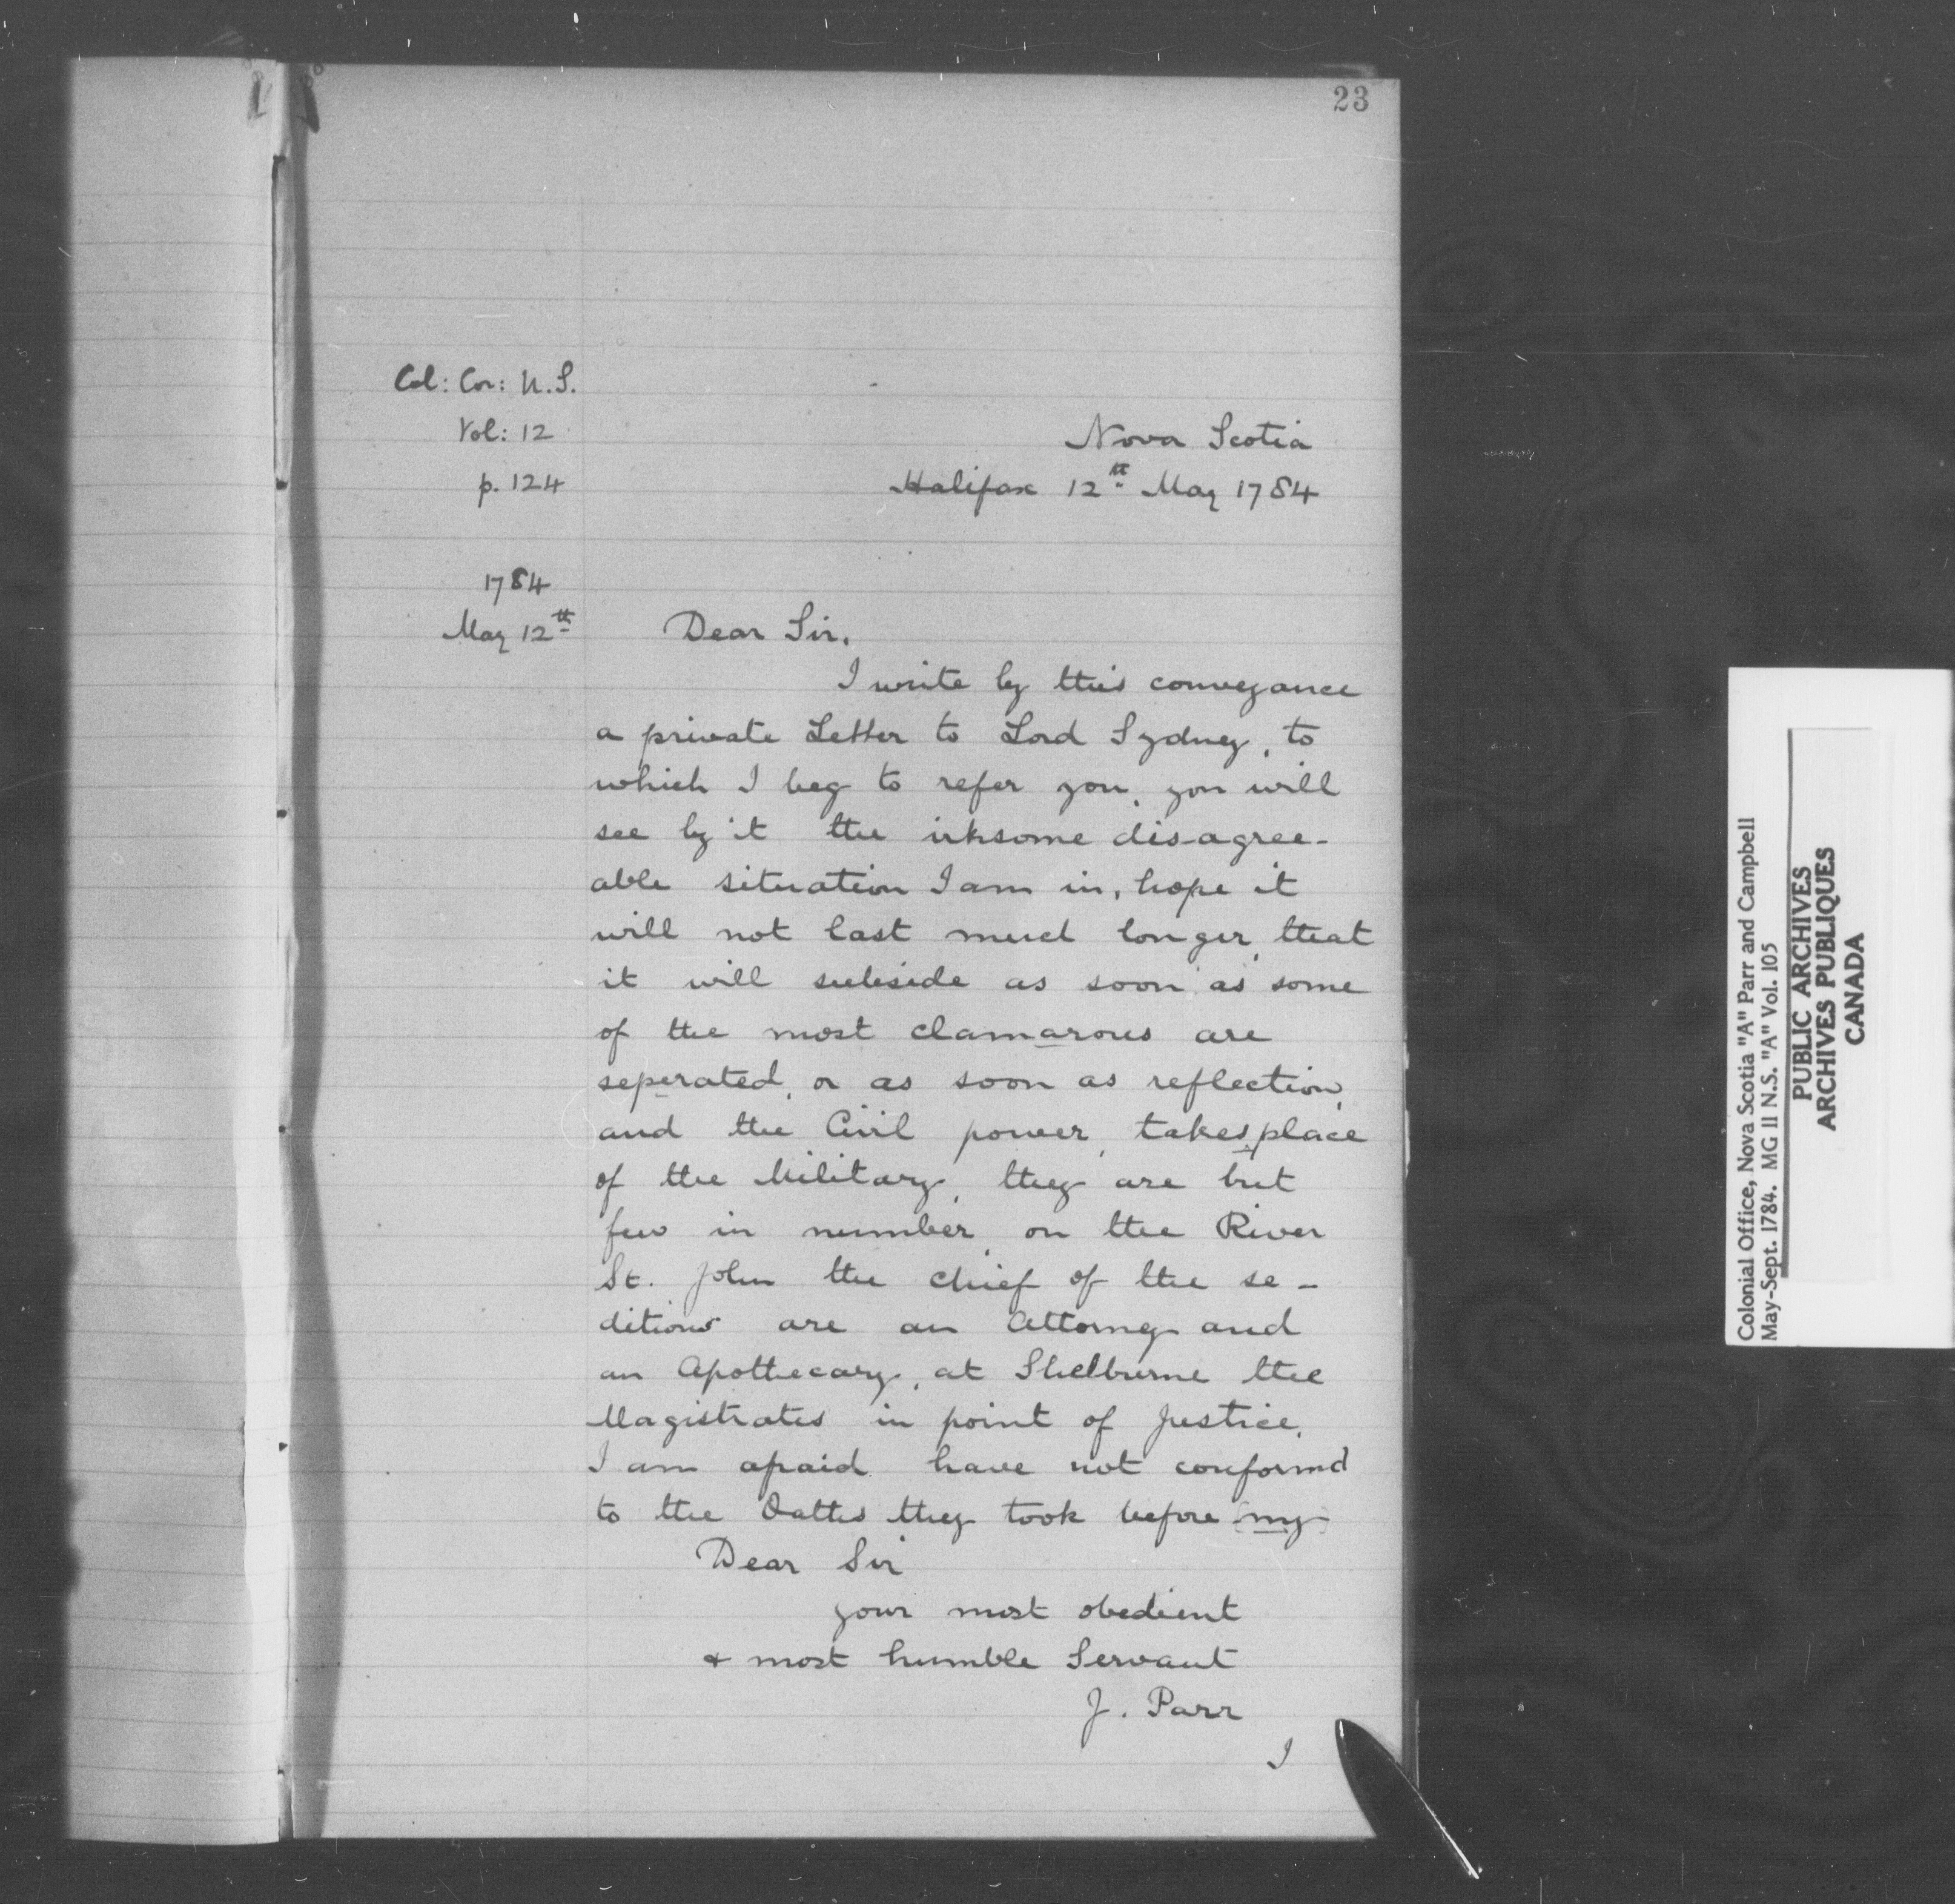 23
Col: Cor: N.S.
Vol: 12
p. 124
Nova Scotia
Halifax 12th May 1784
1784
May 12th
Dear Sir,
I write by this conveyance
a private Letter to Lord Sydney, to
which I beg to refer you, you will
see by it the irksome dis-agree-
able situation I am in, hope it
will not last much longer, that
it will subside as soon as some
of the most clamarous are
seperated, or as soon as reflection,
and the Civil power, takes place
of the Military, they are but
few in number, on the River
St. John the chief of the se-
ditious are an Attorney and
an Apothecary, at Shelburne the
Magistrates in point of Justice,
I am afraid have not conformd
to the Oaths they took before my
Dear Sir
your most obedient
& most humble Servant
J. Parr
I
Colonial Office, Nova Scotia "A" Parr and Campbell
May-Sept. 1784. MG 11 N.S. "A" Vol. 105
PUBLIC ARCHIVES
ARCHIVES PUBLIQUES
CANADA